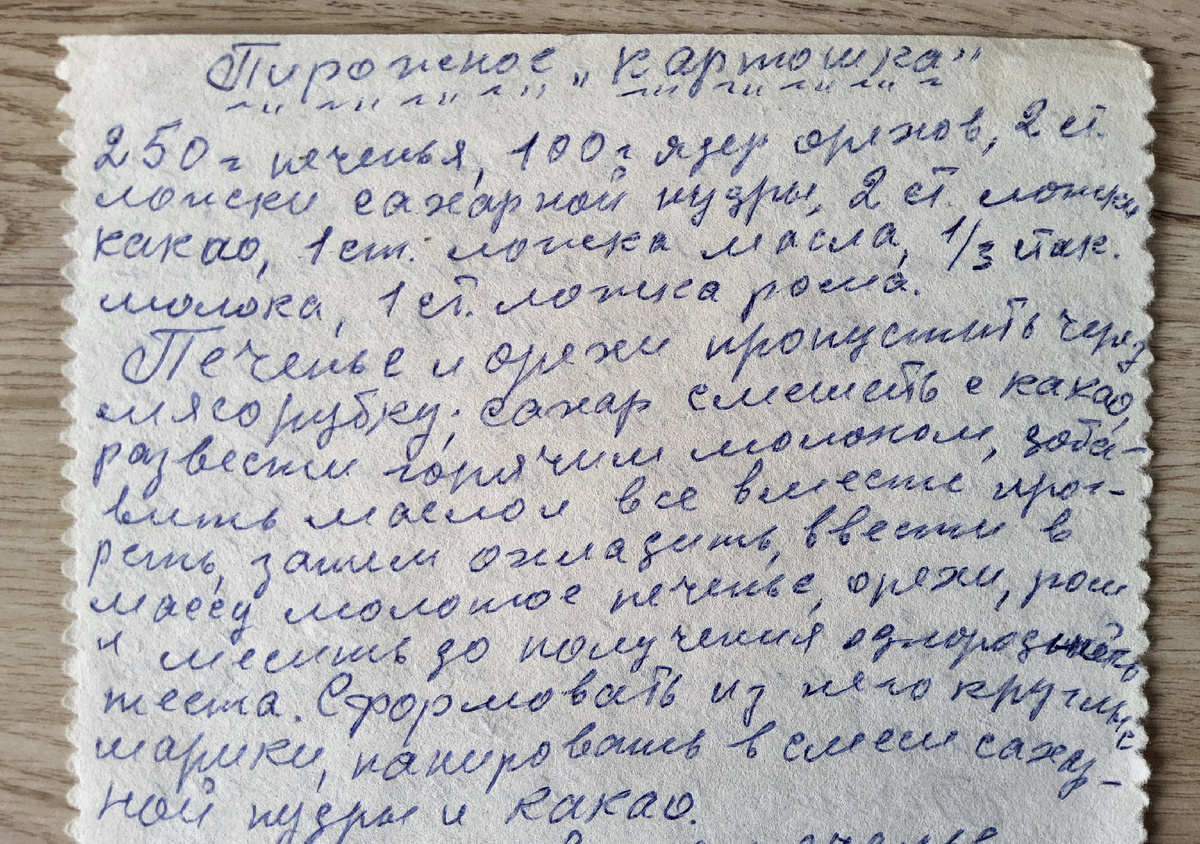 Пирожное „картошка"
250 г печенья, 100 г ядер орехов, 2 ст.
ложки сахарной пудры, 2 ст. ложки
какао, 1 ст. ложка масла, 1/3 пак.
молока, 1 ст. ложка рома.
Печенье и орехи пропустить через
мясорубку; сахар смешать с какао,
развести горячим молоком, доба-
вить масло и все вместе прог-
реть, затем охладить, ввести в
массу молотое печенье, орехи, ром
и месить до получения однородного
теста. Сформовать из него круглые
шарики, панировать в смеси сахар-
ной пудры и какао.
печенье